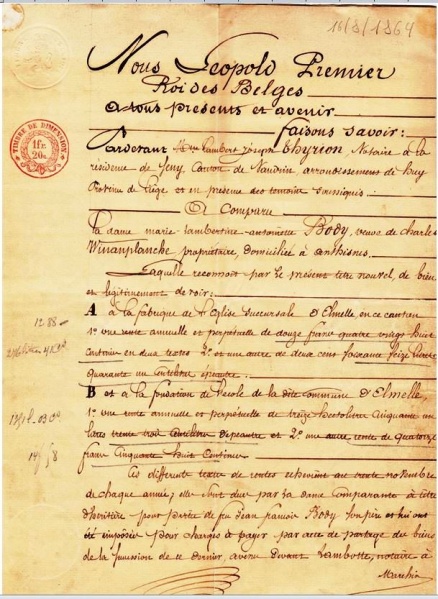 16/3/1864
Nous Leopold Premier
Roi des Belges
A tous presents et avenir
faisons savoir:
TIMBRE DE DIMENSION
1fr.
20c.
Pardevant Lambert Joseph Thyrion, Notaire à la
résidence de Seny, Canton de Nandrin, arrondissement de huy
Province de Liége et en présence des temoins
A Comparu
La dame marie Lambertine antoinette Body, veuve de charles
Winanplanche propriétaire, domiciliée à anthisnes
Laquelle reconnoit par le présent titre nouvel, de bien
et légitimement devoir:
A à la fabrique de l'Eglise succursale d'Elmelle, en ce canton
1° une rente annuelle et perpétuelle de douze francs quatre vingt huit
en deux textes 2° et une autre de deux cent soixante seize
quarante un
12 88
B et à la fondation de l'école de la dite commune d'Elmelle,
1° une rente annuelle et perpétuelle de treize hectolitres cinquante un
litres trente trois d'épeautre et 2° une autre rente de quatorze
francs cinquante huit Centimes
14 58
de rentes échoient au trente novembre
de chaque année; elle sont due par la dame Comparante à titre
d'héritière pour partie de feu Jean francois Body son père et lui ont
été imposées pour charges à payer par acte de partage de biens
de la succession de ce dernier, avenu devant Lambotte, notaire à
Marchin